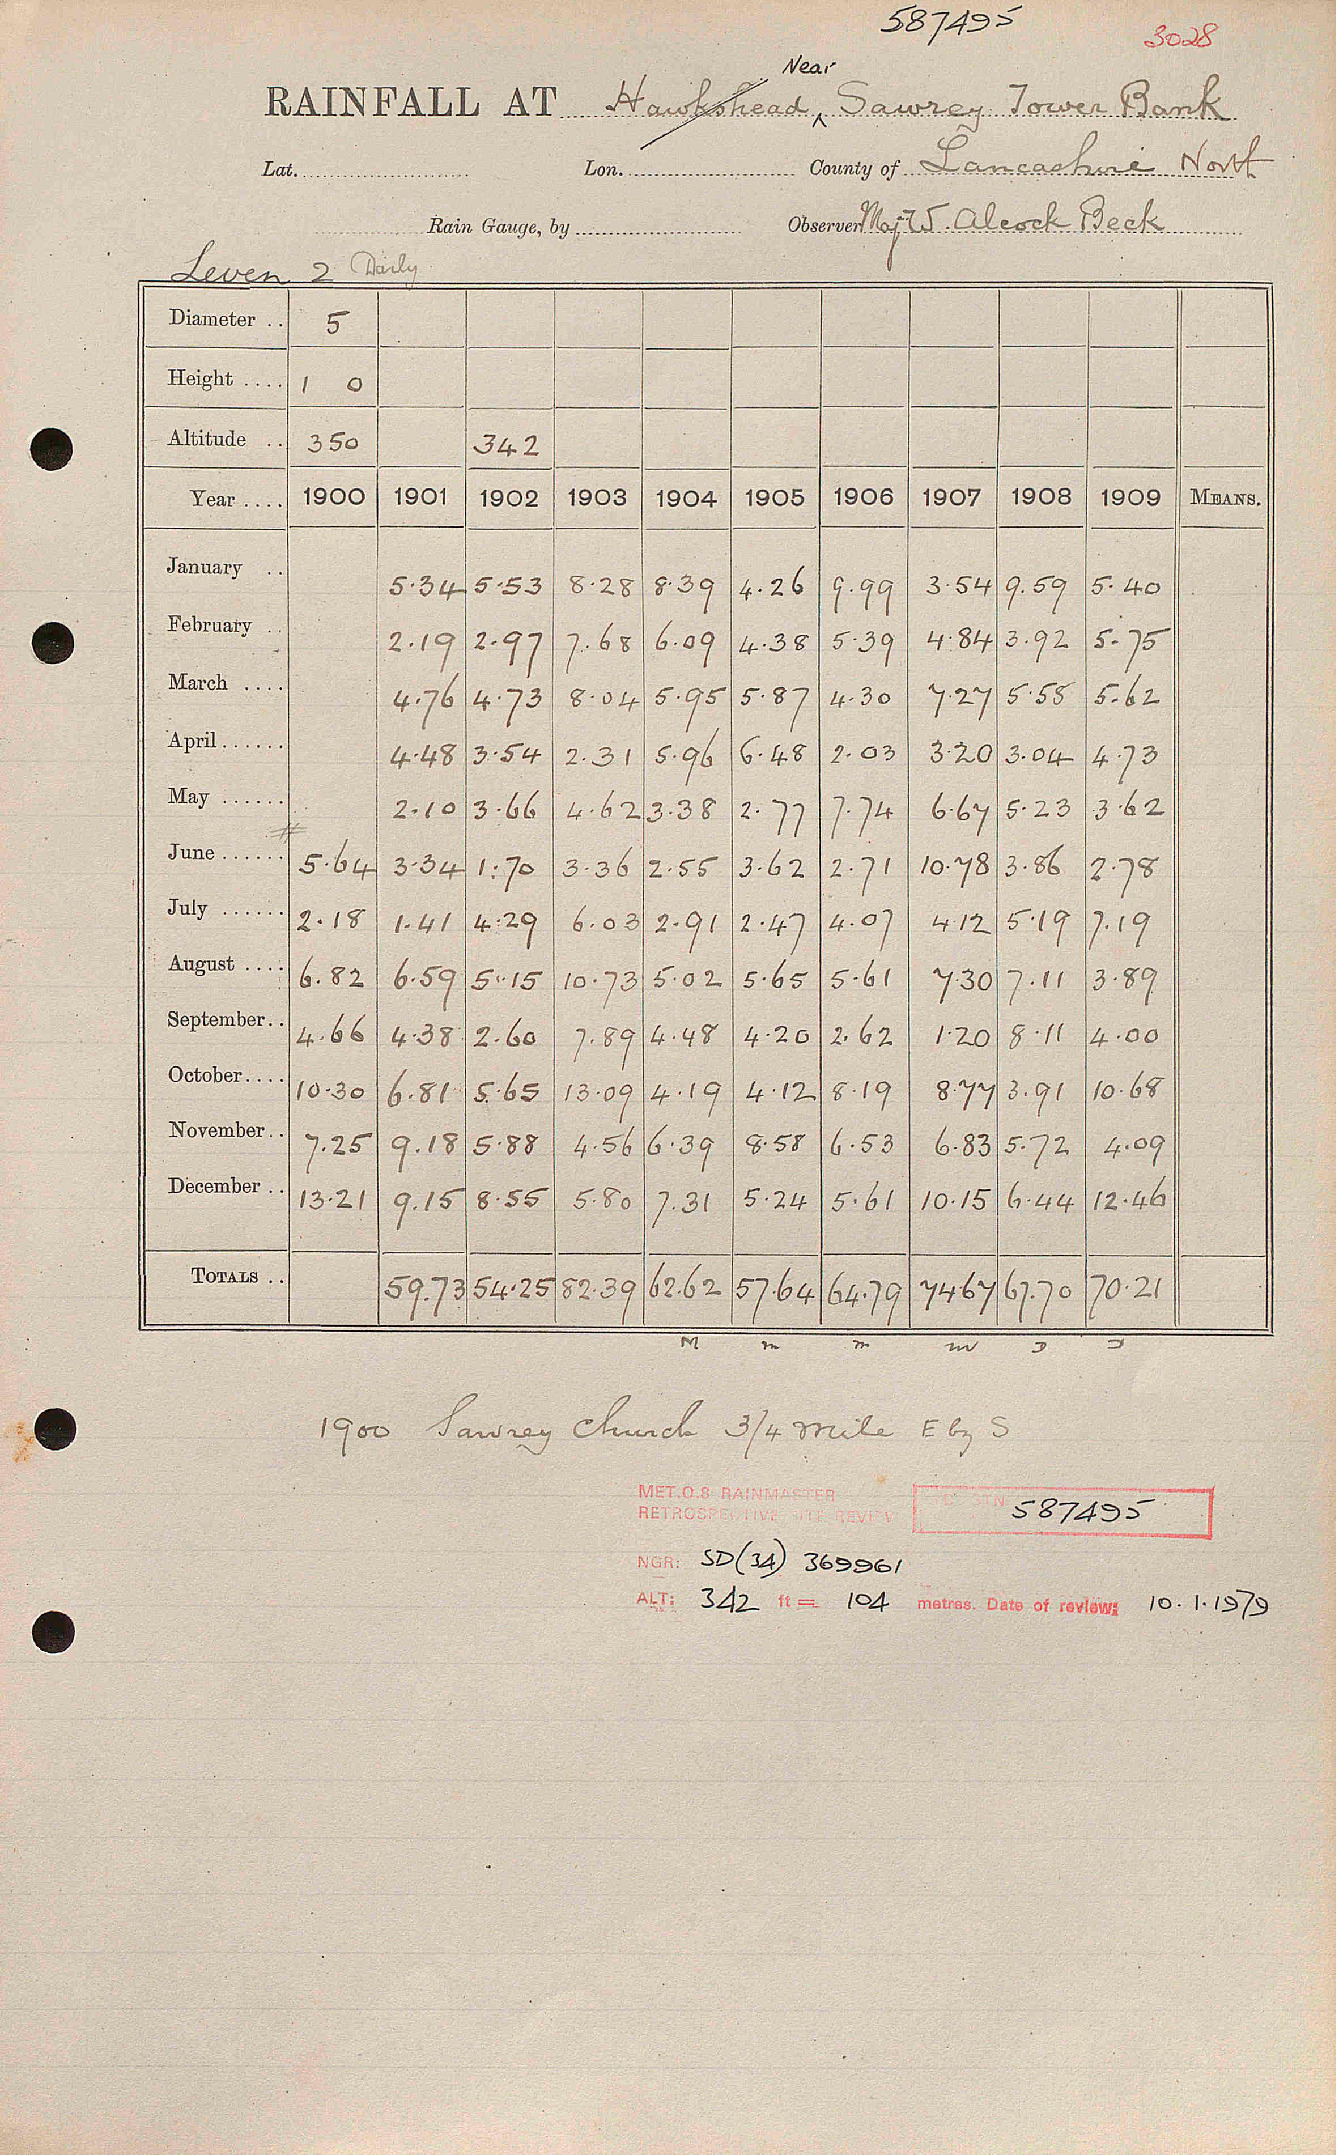 587495
3028
Near
RAINFALL AT Hawkshead Sawrey Tower Bank
Lat. Lon. County of Lancashire North
Rain Gauge, by Observer Maj W. Alcock Beck
Leven 2 Daily
Diameter .. 5
Height .... 1 0
Altitude .. 350 342
Year .... 1900 1901 1902 1903 1904 1905 1906 1907 1908 1909 MEANS.
January .. 5.34 5.53 8.28 8.39 4.26 9.99 3.54 9.59 5.40
February .. 2.19 2.97 7.68 6.09 4.38 5.39 4.84 3.92 5.75
March .... 4.76 4.73 8.04 5.95 5.87 4.30 7.27 5.58 5.62
April...... 4.48 3.54 2.31 5.96 6.48 2.03 3.20 3.04 4.73
May ...... 2.10 3.66 4.62 3.38 2.77 7.74 6.67 5.23 3.62
June...... 5.64 3.34 1.70 3.36 2.55 3.62 2.71 10.78 3.86 2.78
July ...... 2.18 1.41 4.29 6.03 2.91 2.47 4.07 4.12 5.19 7.19
August .... 6.82 6.59 5.15 10.73 5.02 5.65 5.61 7.30 7.11 3.89
September.. 4.66 4.38 2.60 7.89 4.48 4.20 2.62 1.20 8.11 4.00
October.... 10.30 6.81 5.65 13.09 4.19 4.12 8.19 8.77 3.91 10.68
November.. 7.25 9.18 5.88 4.56 6.39 8.58 6.53 6.83 5.72 4.09
December .. 13.21 9.15 8.55 5.80 7.31 5.24 5.61 10.15 6.44 12.46
TOTALS .. 59.73 54.25 82.39 62.62 57.64 64.79 74.67 67.70 70.21
M m m m
1900 Sawrey Church 3/4 mile E by S
MET.O.8 RAINMASTER
RETROSPECTIVE SITE REVIEW
587495
NGR: SD(34) 369961
ALT: 342 ft = 104 metres. Date of review: 10.1.1979